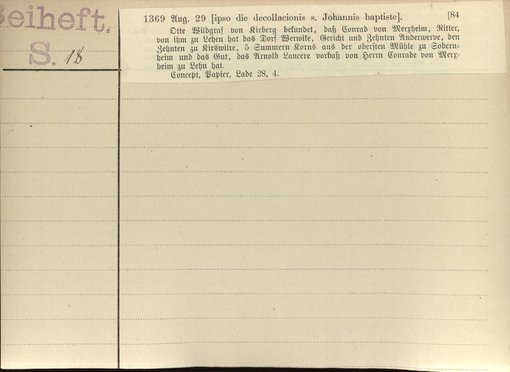 Beiheft.
S. 18
1369 Aug. 29 [ipso die decollacionis s. Johannis baptiste]. [84
Otte Wildgraf von Kirberg bekundet, daß Conrad von Merxheim, Ritter,
von ihm zu Lehen hat das Dorf Werwilke, Gericht und Zehnten Anderwerve, den
Zehnten zu Kirswilre, 5 Summern Korns aus der obersten Mühle zu Sobern-
heim und das Gut, das Arnold Lancere vorbaß von Herrn Conrade von Merx-
heim zu Lehn hat.
Concept, Papier, Lade 28, 4.